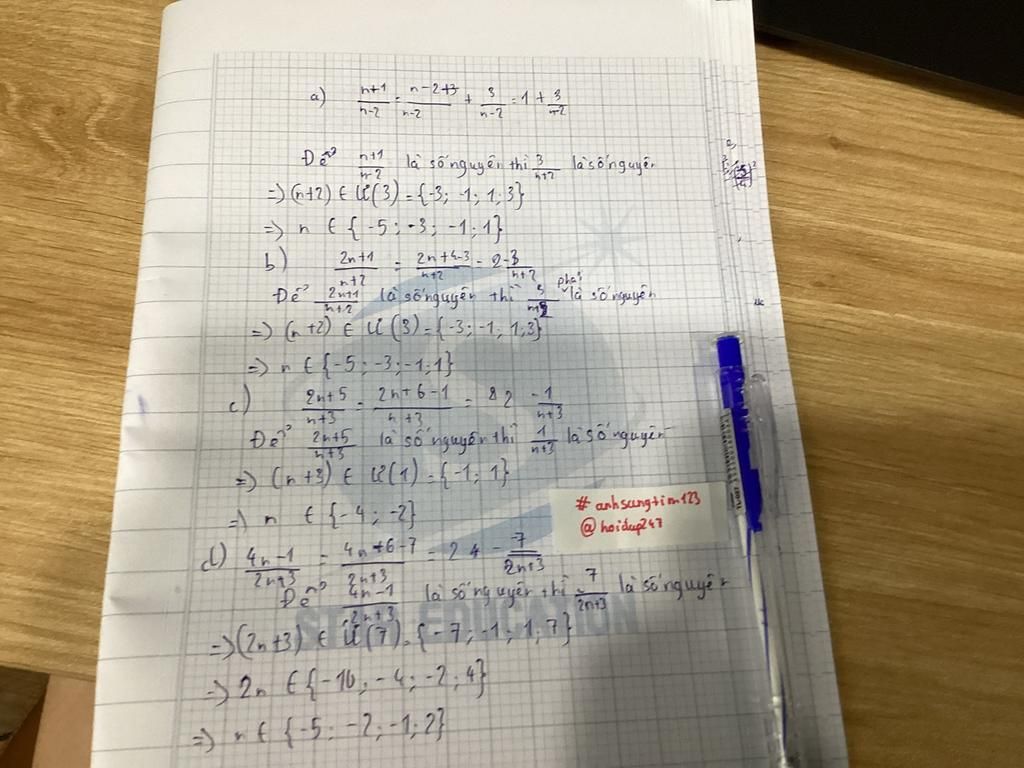 a) n+1/n-2 = n-2+3/n-2 + 3/n-2 = 1 + 3/n+2
Để n+1/n-2 là số nguyên thì 3/n+2 là số nguyên
=> (n+2) ∈ Ư(3) = {-3; -1; 1; 3}
=> n ∈ {-5; -3; -1; 1}
b) 2n+1/n+2 = 2n+4-3/n+2 = 2-3/n+2
Để 2n+1/n+2 là số nguyên thì 3/n+2 phải là số nguyên
=> (n+2) ∈ Ư(3) = {-3; -1; 1; 3}
=> n ∈ {-5; -3; -1; 1}
c) 2n+5/n+3 = 2n+6-1/n+3 = 2 -1/n+3
Để 2n+5/n+3 là số nguyên thì 1/n+3 là số nguyên
=> (n+3) ∈ Ư(1) = {-1; 1}
=> n ∈ {-4; -2}
# anhsangtim123
@hoidap247
d) 4n-1/2n+3 = 4n+6-7/2n+3 = 2 4 - 7/2n+3
Để 4n-1/2n+3 là số nguyên thì 7/2n+3 là số nguyên
=> (2n+3) ∈ Ư(7) = {-7; -1; 1; 7}
=> 2n ∈ {-10; -4; -2; 4}
=> n ∈ {-5; -2; -1; 2}
EDUCATION